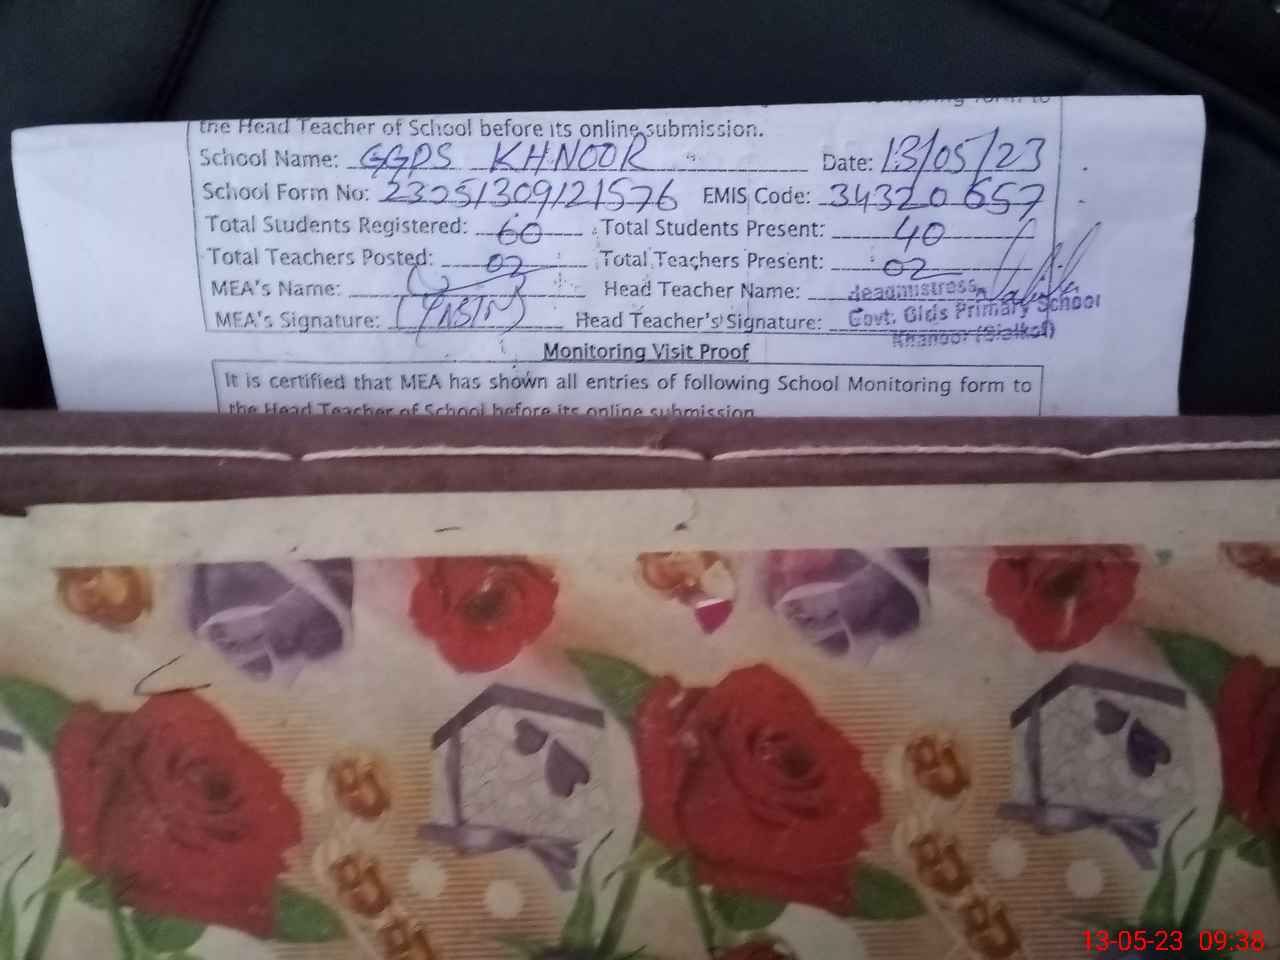 the Head Teacher of School before its online submission.
School Name: GGPS KHNOOR Date: 13/05/23
School Form No: 23251309121576 EMIS Code: 34320657
Total Students Registered: 60 Total Students Present: 40
Total Teachers Posted: 02 Total Teachers Present: 02
MEA's Name: Head Teacher Name: Headmistress
MEA's Signature: (YASIN) Head Teacher's Signature: Govt. Glds Primary School
Khanoor (Sialkot)
Monitoring Visit Proof
It is certified that MEA has shown all entries of following School Monitoring form to
the Head Teacher of School before its online submission
13-05-23 09:38